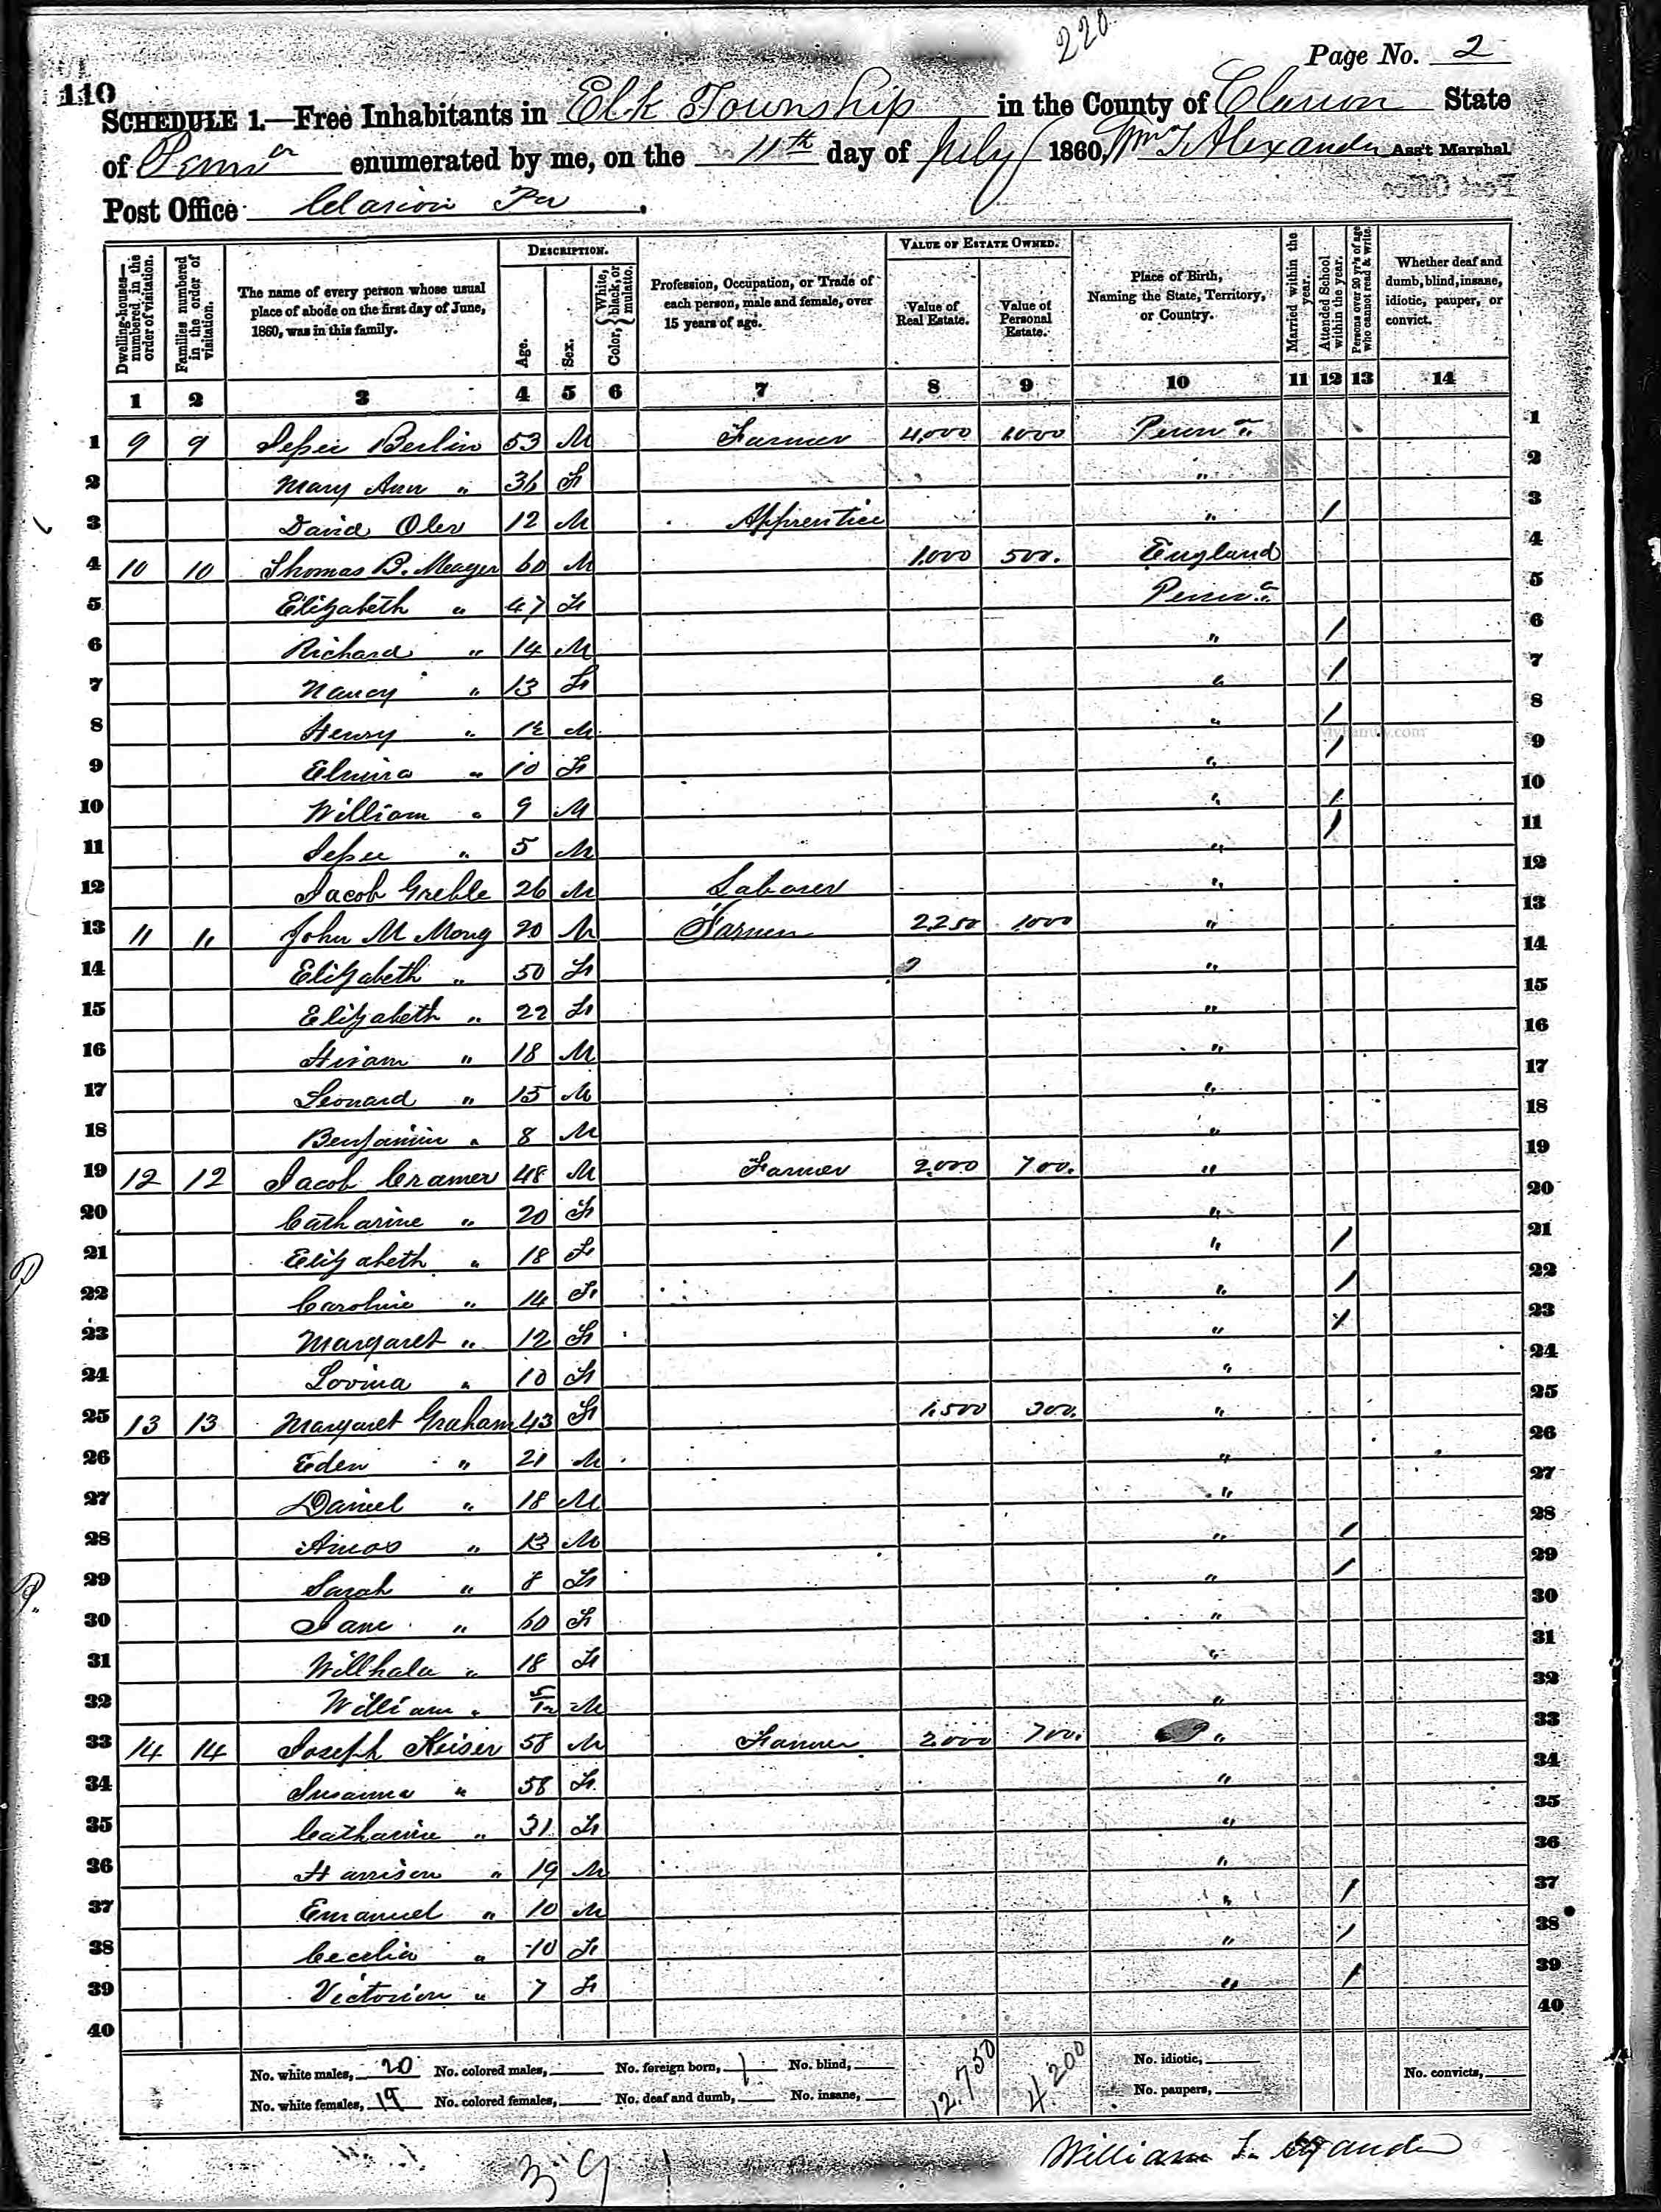 220
Page No. 2
110
SCHEDULE 1.—Free Inhabitants in Elk Township in the County of Clarion State
of Penn a enumerated by me, on the 11th day of July 1860. Wm T Alexander Ass't Marshal.
Post Office Clarion Pa.
Dwelling-houses—numbered in the order of visitation.
Families numbered in the order of visitation.
The name of every person whose usual place of abode on the first day of June, 1860, was in this family.
DESCRIPTION.
Age.
Sex.
Color, { White, black, or mulatto.
Profession, Occupation, or Trade of each person, male and female, over 15 years of age.
VALUE OF ESTATE OWNED.
Value of Real Estate.
Value of Personal Estate.
Place of Birth, Naming the State, Territory, or Country.
Married within the year.
Attended School within the year.
Persons over 20 y'rs of age who cannot read & write.
Whether deaf and dumb, blind, insane, idiotic, pauper, or convict.
1 2 3 4 5 6 7 8 9 10 11 12 13 14
1 9 9 Jesse Berlin 53 M Farmer 4,000 1000 Penn a 1
2 Mary Ann " 36 F " 2
3 David Oler 12 M Apprentice " / 3
4 10 10 Thomas B. Meager 60 M 1,000 500. England 4
5 Elizabeth " 47 F Penn a 5
6 Richard " 14 M " / 6
7 Nancy " 13 F " / 7
8 Henry " 12 M " / 8
9 Elmira " 10 F " / 9
10 William " 9 M " / 10
11 Jesse " 5 M " / 11
12 Jacob Greble 26 M Laborer " 12
13 11 11 John M Mong 20 M Farmer 2,250 1,000 " 13
14 Elizabeth " 50 F " 14
15 Elizabeth " 22 F " 15
16 Hiram " 18 M " 16
17 Leonard " 15 M " 17
18 Benjamin " 8 M " 18
19 12 12 Jacob Cramer 48 M Farmer 2,000 700. " 19
20 Catharine " 20 F " 20
21 Elizabeth " 18 F " / 21
22 Caroline " 14 F " / 22
23 Margaret " 12 F " / 23
24 Lovina " 10 F " 24
25 13 13 Margaret Graham 43 F 1,500 300. " 25
26 Eden " 21 M " 26
27 Daniel " 18 M " 27
28 Amos " 13 M " / 28
29 Sarah " 8 F " / 29
30 Jane " 60 F " 30
31 Willhala " 18 F " 31
32 William " 5/12 M " 32
33 14 14 Joseph Keiser 58 M Farmer 2,000 700. " 33
34 Susanna " 58 F " 34
35 Catharine " 31 F " 35
36 Harrison " 19 M " 36
37 Emanuel " 10 M " / 37
38 Cecelia " 10 F " / 38
39 Victorien " 7 F " / 39
40 40
No. white males, 20 No. colored males, No. foreign born, 1 No. blind, 12,750 4,200 No. idiotic, No. convicts,
No. white females, 19 No. colored females, No. deaf and dumb, No. insane, No. paupers,
39 1
William T. Alexander